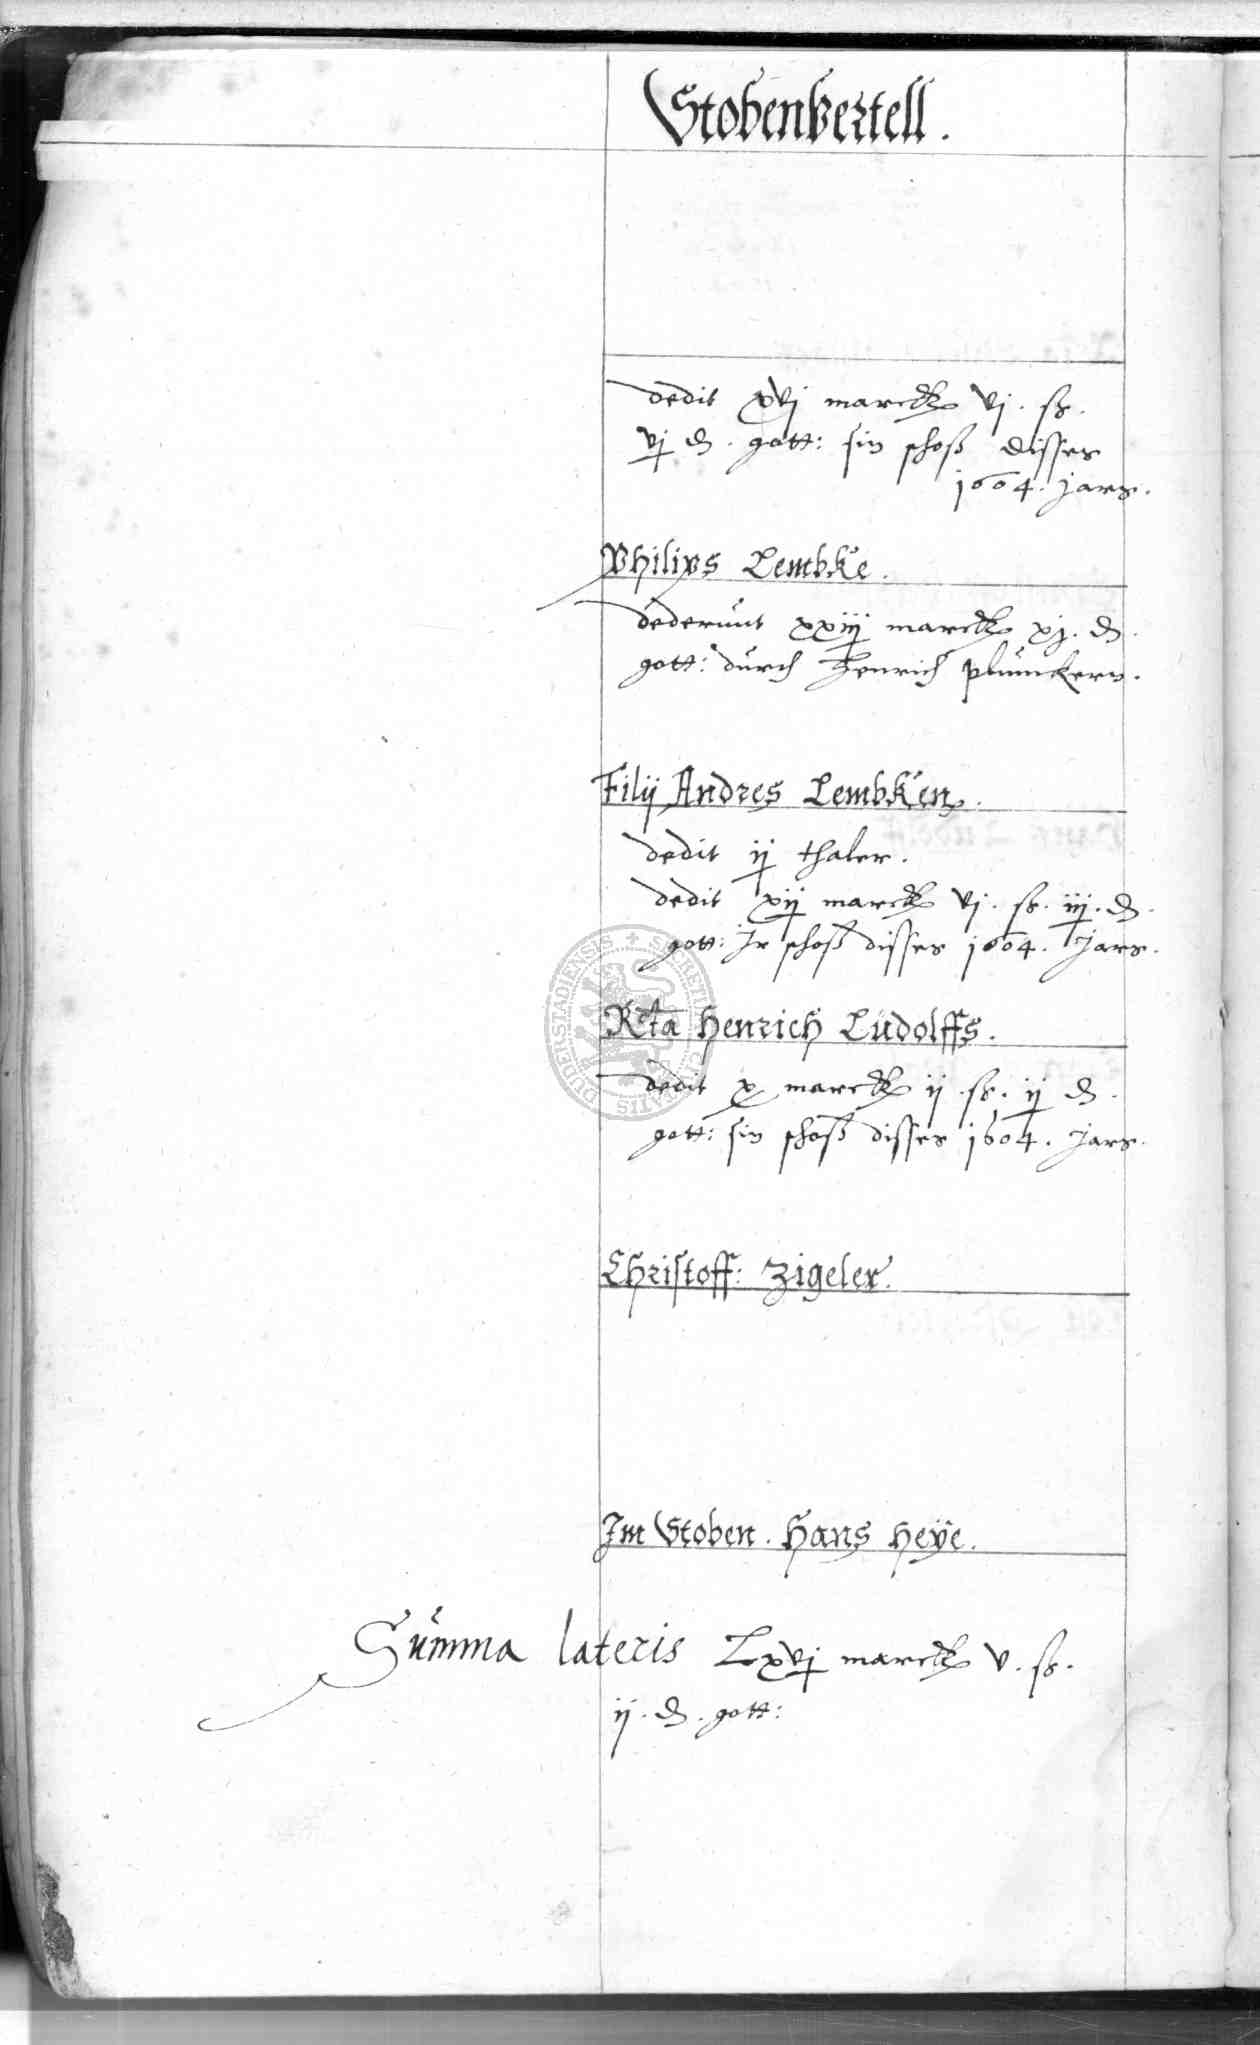 Stobenvertell.
dedit xvj marck vj. ß.
vj ₰. gott: sin schoß disses
1604. Jars.
Philips Lembke.
dederunt xxiij marck xj. ₰.
gott: durch Henrich plunckern.
Filij Andres Lembken.
dedit ij thaler.
dedit xij marck vj. ß. iij. ₰.
gott: Jr schoß disses 1604. Jars.
Rcta Henrich Ludolffs.
dedit x marck ij. ß. ij ₰.
gott: sin schoß disses 1604. Jars.
Christoff: Zigeler.
Im Stoben. Hans Heÿe.
Summa lateris Lxvj marck v. ß.
ij. ₰. gott:
DUDERSTADIENSIS